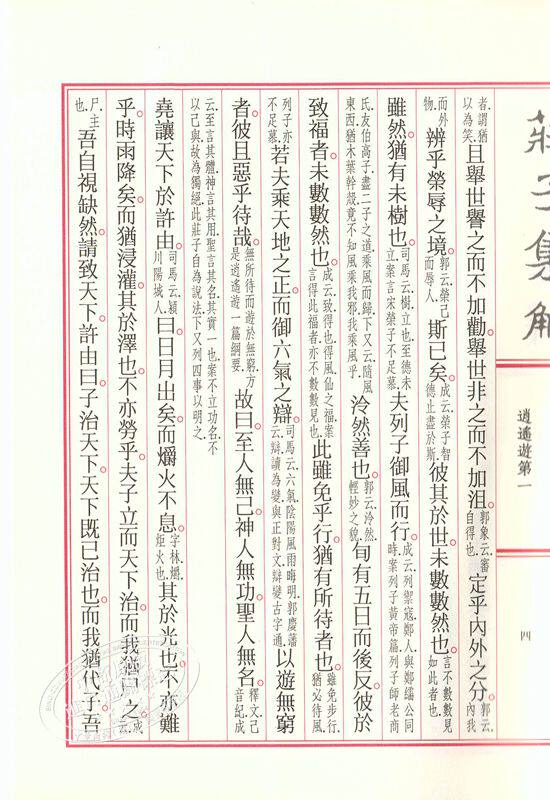 莊子集解
逍遙遊第一
四
者。謂猶以為笑。且舉世譽之而不加勸。舉世非之而不加沮。郭象云。審自得也。定乎內外之分。郭云。內我
而外物。辨乎榮辱之境。郭云。榮己而辱人。斯已矣。成云。榮子智德止盡於斯。彼其於世。未數數然也。言不數數見如此者也。
雖然。猶有未樹也。司馬云。樹。立也。至德未立。案。言宋榮子不足慕。夫列子御風而行。成云。列禦寇。鄭人。與鄭繻公同時。案。列子黃帝篇。列子師老商
氏。友伯高子。盡二子之道。乘風而歸。下又云。隨風東西。猶木葉幹殼。竟不知風乘我邪。我乘風乎。泠然善也。郭云。泠然。輕妙之貌。旬有五日而後反。彼於
致福者。未數數然也。成云。致。得也。得風仙之福。案。言得此福者。亦不數數見也。此雖免乎行。猶有所待者也。雖免步行。猶必待風。
列子亦不足慕。若夫乘天地之正。而御六氣之辯。司馬云。六氣。陰陽風雨晦明。郭慶藩云。辯讀為變。與正對文。辯變古字通。以遊無窮
者。彼且惡乎待哉。無所待而遊於無窮。方是逍遙遊一篇綱要。故曰。至人無己。神人無功。聖人無名。釋文。己音紀。成
云。至言其體。神言其用。聖言其名。其實一也。案。不立功名。不以己與。故為獨絕。此莊子自為說法。下又列四事以明之。
堯讓天下於許由。司馬云。潁川陽城人。曰。日月出矣。而爝火不息。字林。爝。炬火也。其於光也。不亦難
乎。時雨降矣。而猶浸灌。其於澤也。不亦勞乎。夫子立而天下治。而我猶尸之。成云。
尸。主也。吾自視缺然。請致天下。許由曰。子治天下。天下既已治也。而我猶代子。吾